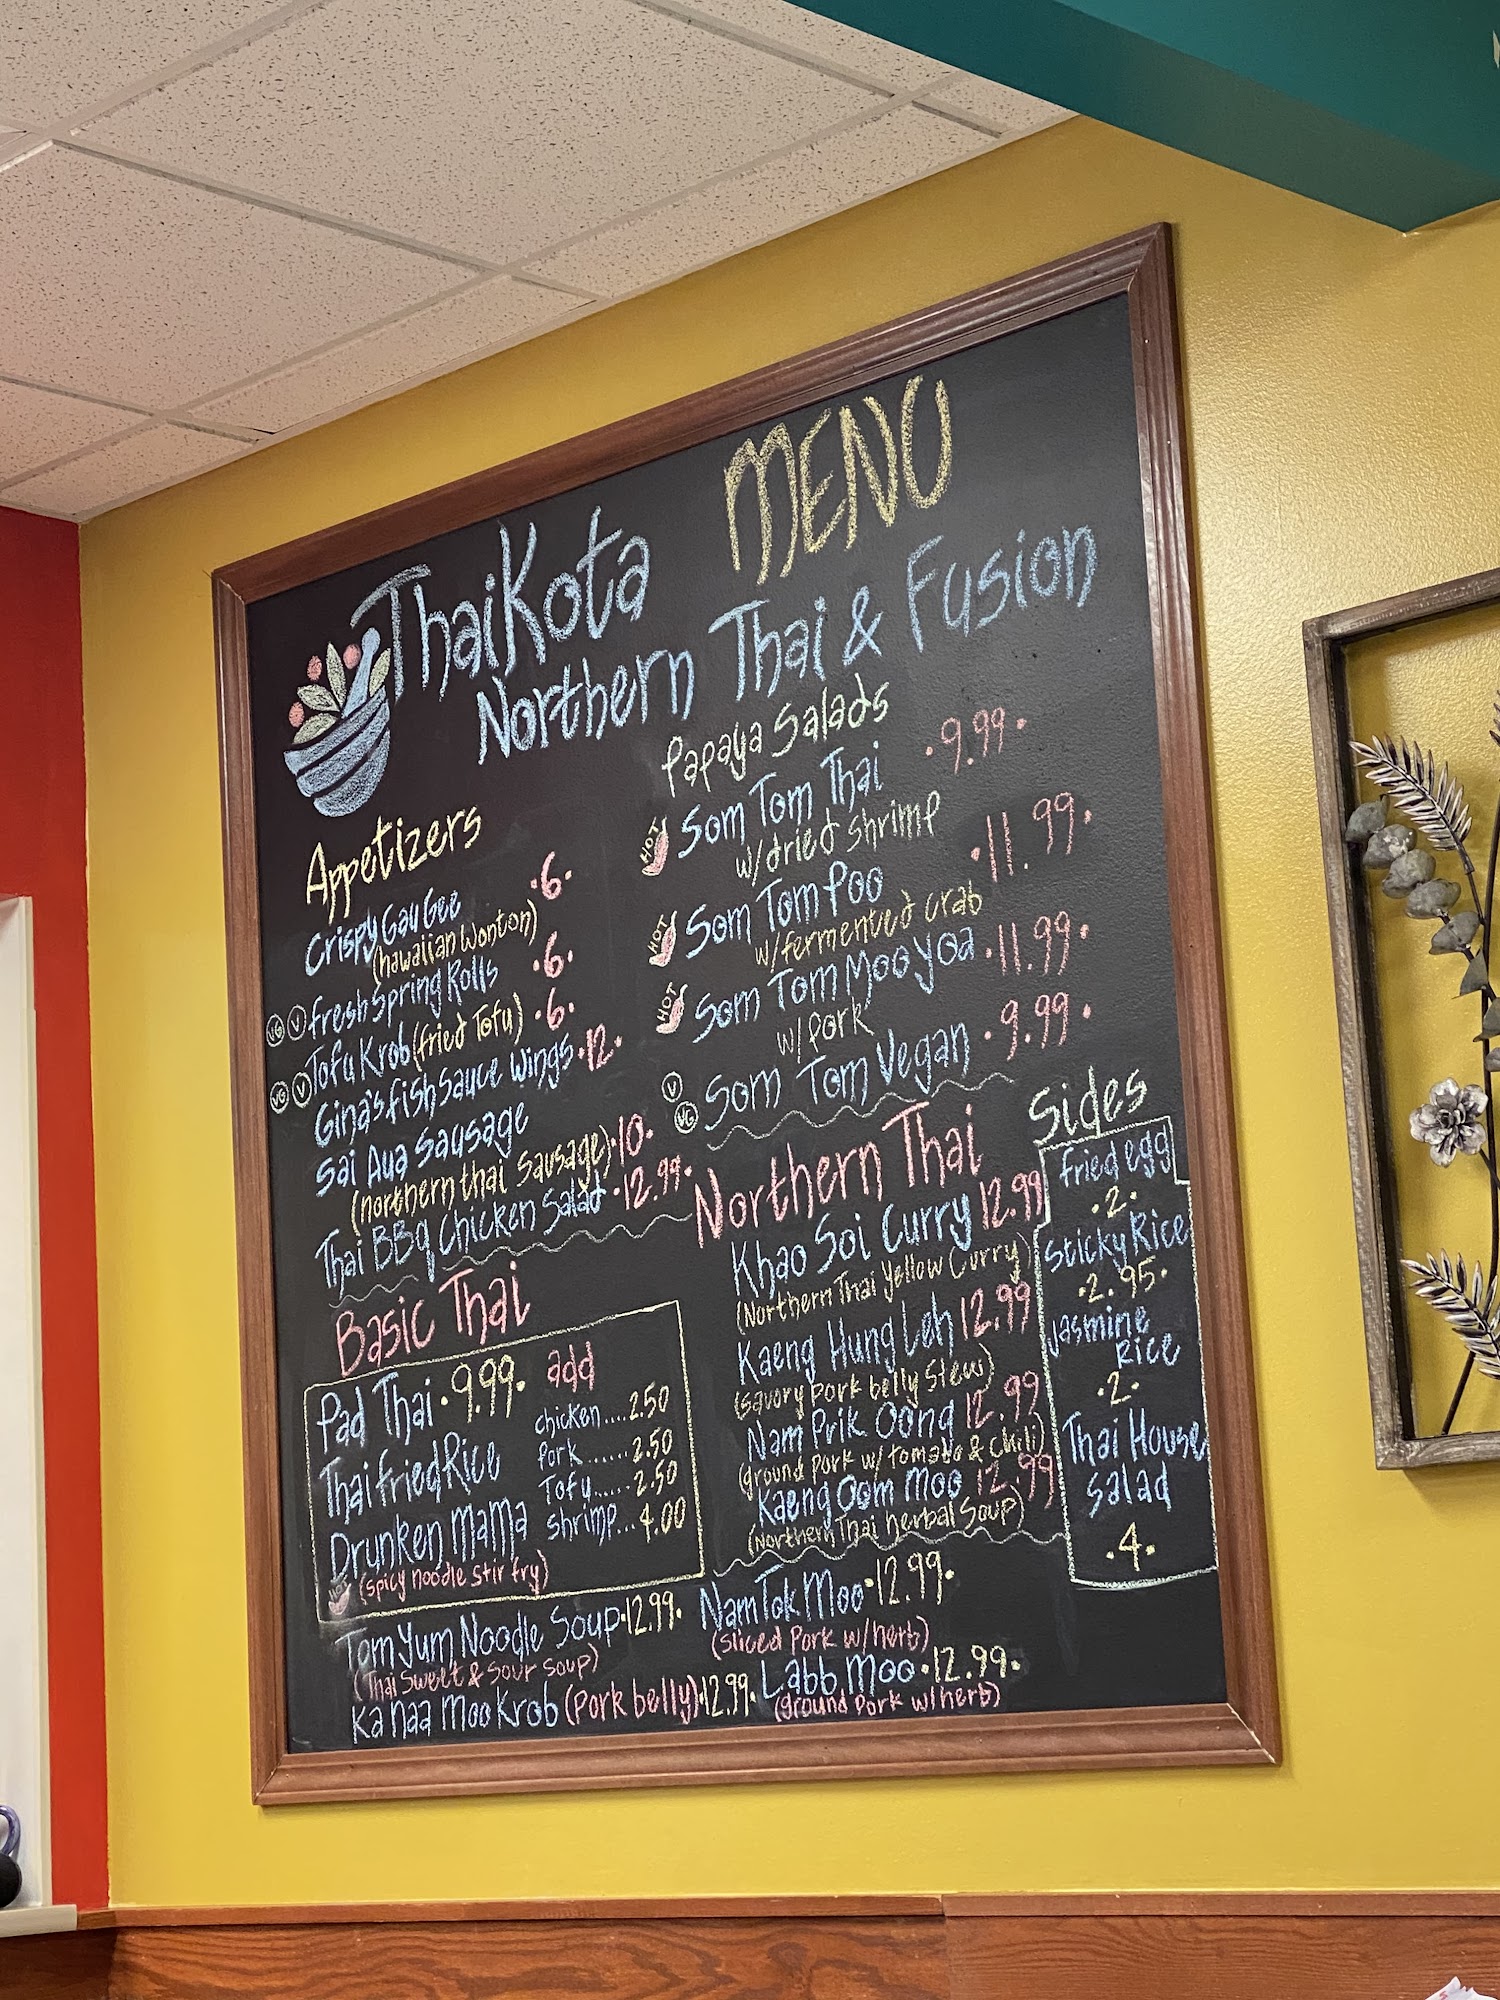 MENU
ThaiKota
Northern Thai & Fusion
Appetizers
Crispy Gau Gee •6•
(hawaiian Wonton)
VG V Fresh Spring Rolls •6•
VG V Tofu Krob (fried Tofu) •6•
Gina's fish Sauce Wings •12•
Sai Aua Sausage
(northern thai Sausage) •10•
Thai BBq Chicken Salad •12.99•
Basic Thai
Pad Thai •9.99•
Thai Fried Rice
Drunken Mama
HOT (spicy noodle Stir fry)
add
chicken....2.50
Pork.......2.50
Tofu......2.50
shrimp...4.00
Tom Yum Noodle Soup •12.99•
(Thai Sweet & Sour Soup)
Ka Naa Moo Krob (Pork belly) •12.99•
Papaya Salads
HOT Som Tom Thai •9.99•
w/dried shrimp
HOT Som Tom Poo •11.99•
w/fermented crab
HOT Som Tom Moo yoa •11.99•
w/Pork
V VG Som Tom Vegan •9.99•
Northern Thai
Khao Soi Curry 12.99
(Northern Thai Yellow Curry)
Kaeng Hung Leh 12.99
(savory pork belly Stew)
Nam Prik Oong 12.99
(ground pork w/ tomato & chili)
Kaeng Oom Moo 12.99
(Northern Thai herbal Soup)
Nam Tok Moo •12.99•
(sliced Pork w/herb)
Labb Moo •12.99•
(ground Pork w/herb)
Sides
fried egg
•2•
Sticky Rice
•2.95•
Jasmine
Rice
•2•
Thai House
Salad
•4•